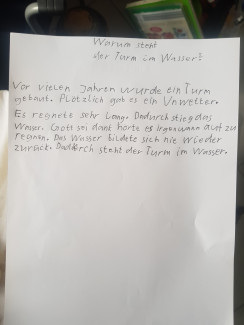 Warum steht
der Turm im Wasser?
Vor vielen Jahren wurde ein Turm
gebaut. Plötzlich gab es ein Unwetter.
Es regnete sehr lang. Dadurch stieg das
Wasser. Gott sei dank hörte es irgendwann auf zu
regnen. Das Wasser bildete sich nie wieder
zurück. Dadurch steht der Turm im Wasser.